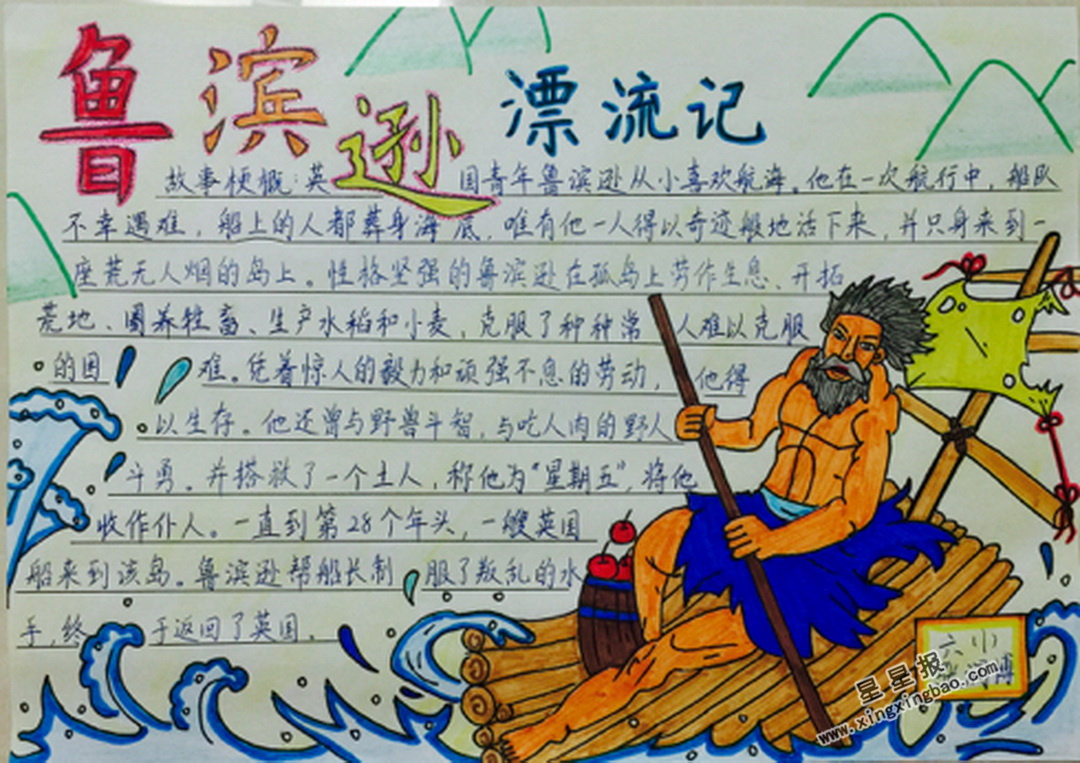 鲁滨逊漂流记
故事梗概：英国青年鲁滨逊从小喜欢航海。他在一次航行中，船队
不幸遇难，船上的人都葬身海底，唯有他一人得以奇迹般地活下来，并只身来到一
座荒无人烟的岛上。性格坚强的鲁滨逊在孤岛上劳作生息、开拓
荒地、圈养牲畜、生产水稻和小麦，克服了种种常人难以克服
的困难。凭着惊人的毅力和顽强不息的劳动，他得
以生存。他还曾与野兽斗智，与吃人肉的野人
斗勇。并搭救了一个土人，称他为“星期五”，将他
收作仆人。一直到第28个年头，一艘英国
船来到该岛。鲁滨逊帮船长制服了叛乱的水
手，终于返回了英国。
六
星星报
www.xingxingbao.com